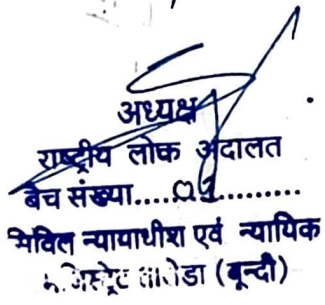 अध्यक्ष
राष्ट्रीय लोक अदालत
बैंच संख्या.....01...........
सिविल न्यायाधीश एवं न्यायिक
मजिस्ट्रेट तालेडा (बून्दी)